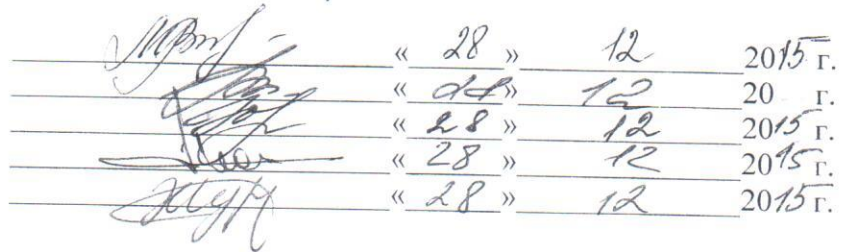 « 28 » 12 2015 г.
« 28 » 12 20 г.
« 28 » 12 2015 г.
« 28 » 12 2015 г.
« 28 » 12 2015 г.